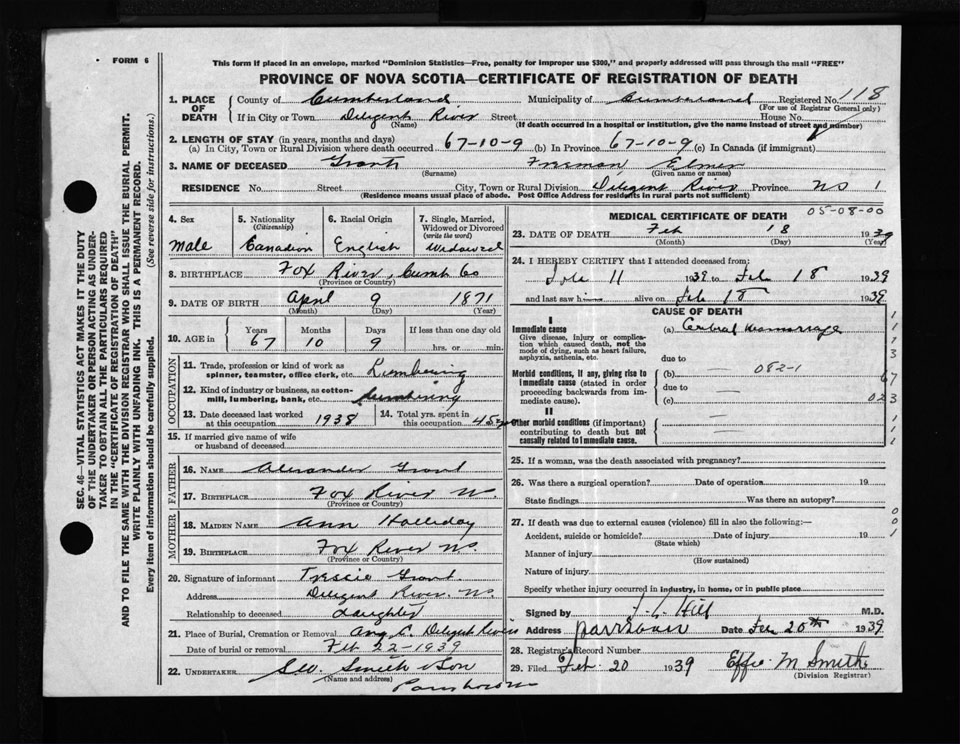 FORM 6
This form if placed in an envelope, marked "Dominion Statistics—Free, penalty for improper use $300," and properly addressed will pass through the mail "FREE"
PROVINCE OF NOVA SCOTIA—CERTIFICATE OF REGISTRATION OF DEATH
SEC. 46—VITAL STATISTICS ACT MAKES IT THE DUTY
OF THE UNDERTAKER OR PERSON ACTING AS UNDER-
TAKER TO OBTAIN ALL THE PARTICULARS REQUIRED
IN THE "CERTIFICATE OF REGISTRATION OF DEATH"
AND TO FILE THE SAME WITH THE DIVISION REGISTRAR WHO SHALL ISSUE THE BURIAL PERMIT.
WRITE PLAINLY WITH UNFADING INK. THIS IS A PERMANENT RECORD.
Every item of information should be carefully supplied. (See reverse side for instructions.)
1. PLACE OF DEATH County of Cumberland Municipality of Cumberland Registered No. 118
(For use of Registrar General only)
If in City or Town Diligent River Street House No.
(Name) (If death occurred in a hospital or institution, give the name instead of street and number)
2. LENGTH OF STAY (in years, months and days)
(a) In City, Town or Rural Division where death occurred 67-10-9 (b) In Province 67-10-9 (c) In Canada (if immigrant)
3. NAME OF DECEASED Grant Freeman Elmer
(Surname) (Given name or names)
RESIDENCE No. Street City, Town or Rural Division Diligent River Province NS 1
(Residence means usual place of abode. Post Office Address for residents in rural parts not sufficient)
4. Sex Male
5. Nationality (Citizenship) Canadian
6. Racial Origin English
7. Single, Married, Widowed or Divorced (write the word) Widowed
8. BIRTHPLACE Fox River, Cumb Co
(Province or Country)
9. DATE OF BIRTH April 9 1871
(Month) (Day) (Year)
10. AGE in Years 67 Months 10 Days 9 If less than one day old hrs. or min.
OCCUPATION
11. Trade, profession or kind of work as spinner, teamster, office clerk, etc. Lumbering
12. Kind of industry or business, as cotton-mill, lumbering, bank, etc. Lumbering
13. Date deceased last worked at this occupation 1938
14. Total yrs. spent in this occupation 45
15. If married give name of wife or husband of deceased
FATHER
16. NAME Alexander Grant
17. BIRTHPLACE Fox River NS
(Province or Country)
MOTHER
18. MAIDEN NAME Ann Halliday
19. BIRTHPLACE Fox River NS.
(Province or Country)
20. Signature of informant Grant
Address Diligent River. NS
Relationship to deceased daughter
21. Place of Burial, Cremation or Removal Diligent River
Date of burial or removal Feb 22-1939
22. UNDERTAKER Smith & Son
(Name and address)
MEDICAL CERTIFICATE OF DEATH 05-08-00
23. DATE OF DEATH Feb 18 1939
(Month) (Day) (Year)
24. I HEREBY CERTIFY that I attended deceased from:
11 1939 to Feb 18 1939
and last saw him alive on Feb 18 1939
CAUSE OF DEATH
I
Immediate cause (a) Cerbral Heamorrage
Give disease, injury or complication which caused death, not the mode of dying, such as heart failure, asphyxia, asthenia, etc.
due to
Morbid conditions, if any, giving rise to immediate cause (stated in order proceeding backwards from immediate cause). (b) 082-1
due to
(c)
II
Other morbid conditions (if important) contributing to death but not causally related to immediate cause.
1
1
1
3
67
023
1
1
1
25. If a woman, was the death associated with pregnancy?
26. Was there a surgical operation? Date of operation 19
State findings Was there an autopsy?
27. If death was due to external causes (violence) fill in also the following:—
Accident, suicide or homicide? Date of injury 19
(State which)
Manner of injury
(How sustained)
Nature of injury
Specify whether injury occurred in industry, in home, or in public place
0
0
1
Signed by Hill M.D.
Address Parrsboro Date Feb 20th 1939
28. Registrar's Record Number
29. Filed Feb 20 1939 Effie M Smith
(Division Registrar)